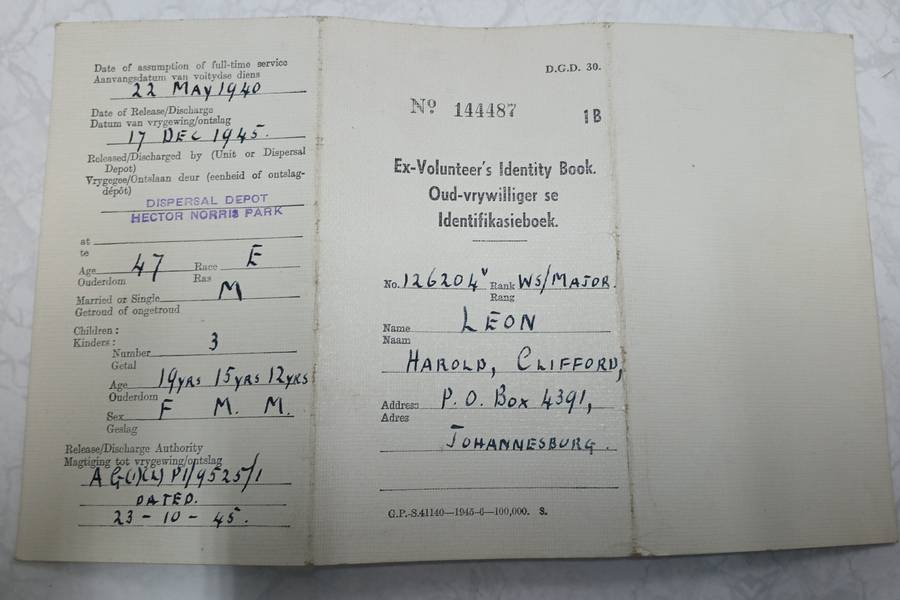 Date of assumption of full-time service
Aanvangsdatum van voltydse diens
22 MAY 1940
Date of Release/Discharge
Datum van vrygewing/ontslag
17 DEC 1945.
Released/Discharged by (Unit or Dispersal
Depot)
Vrygegee/Ontslaan deur (eenheid of ontslag-
dépôt)
DISPERSAL DEPOT
HECTOR NORRIS PARK
at
te
Age 47 Race E
Ouderdom Ras
Married or Single M
Getroud of ongetroud
Children:
Kinders:
Number 3
Getal
Age 19YRS 15YRS 12YRS
Ouderdom
Sex F M. M.
Geslag
Release/Discharge Authority
Magtiging tot vrygewing/ontslag
P1/9525/1
DATED.
23-10-45.
D.G.D. 30.
No 144487
1B
Ex-Volunteer's Identity Book.
Oud-vrywilliger se
Identifikasieboek.
No. 126204V Rank WS/MAJOR.
Rang
Name LEON
Naam
HAROLD, CLIFFORD,
Address P.O. Box 4391,
Adres
JOHANNESBURG.
G.P.-S.41140—1945-6—100,000. S.